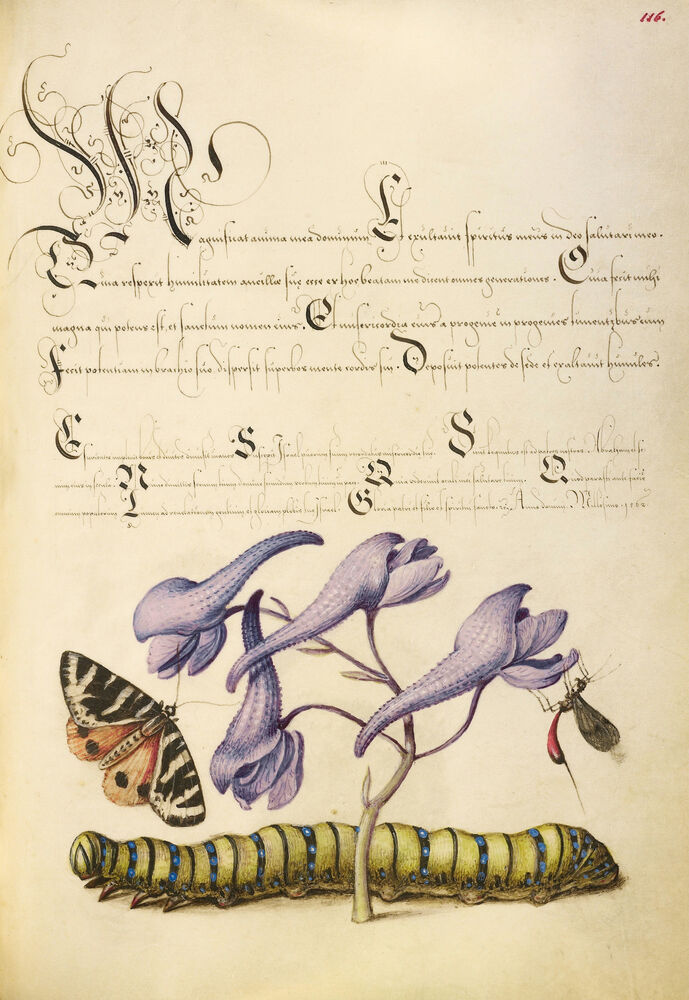 116.
Magnificat anima mea dominum Et exultavit spiritus meus in deo salutari meo.
Quia respexit humilitatem ancillæ suę ecce ex hoc beatam me dicent omnes generationes. Quia fecit mihi
magna qui potens est, et sanctum nomen eius. Et misericordia eius a progenie in progenies timentibus eum
Fecit potentiam in brachio suo dispersit superbos mente cordis sui. Deposuit potentes de sede et exaltavit humiles.
Esurientes implevit bonis et divites dimisit inanes Suscepit Israel puerum suum recordatus misericordiæ suæ. Sicut locutus est ad patres nostros. Abraham et se
mini eius in secula. Nunc dimittis servum tuum Domine secundum verbum tuum in pace. Quia viderunt oculi mei salutare tuum. Quod parasti ante faciem
omnium populorum. Lumen ad revelationem gentium et gloriam plebis tuæ Israel. Gloria patri et filio et spiritui sancto. Anno domini Millesimo. 1562.